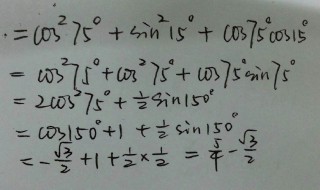 =cos²75°+sin²15°+cos75°cos15°
=cos²75°+cos²75°+cos75°sin75°
=2cos²75°+½sin150°
=cos150°+1+½sin150°
=-√3/2+1+½×½=5/4-√3/2